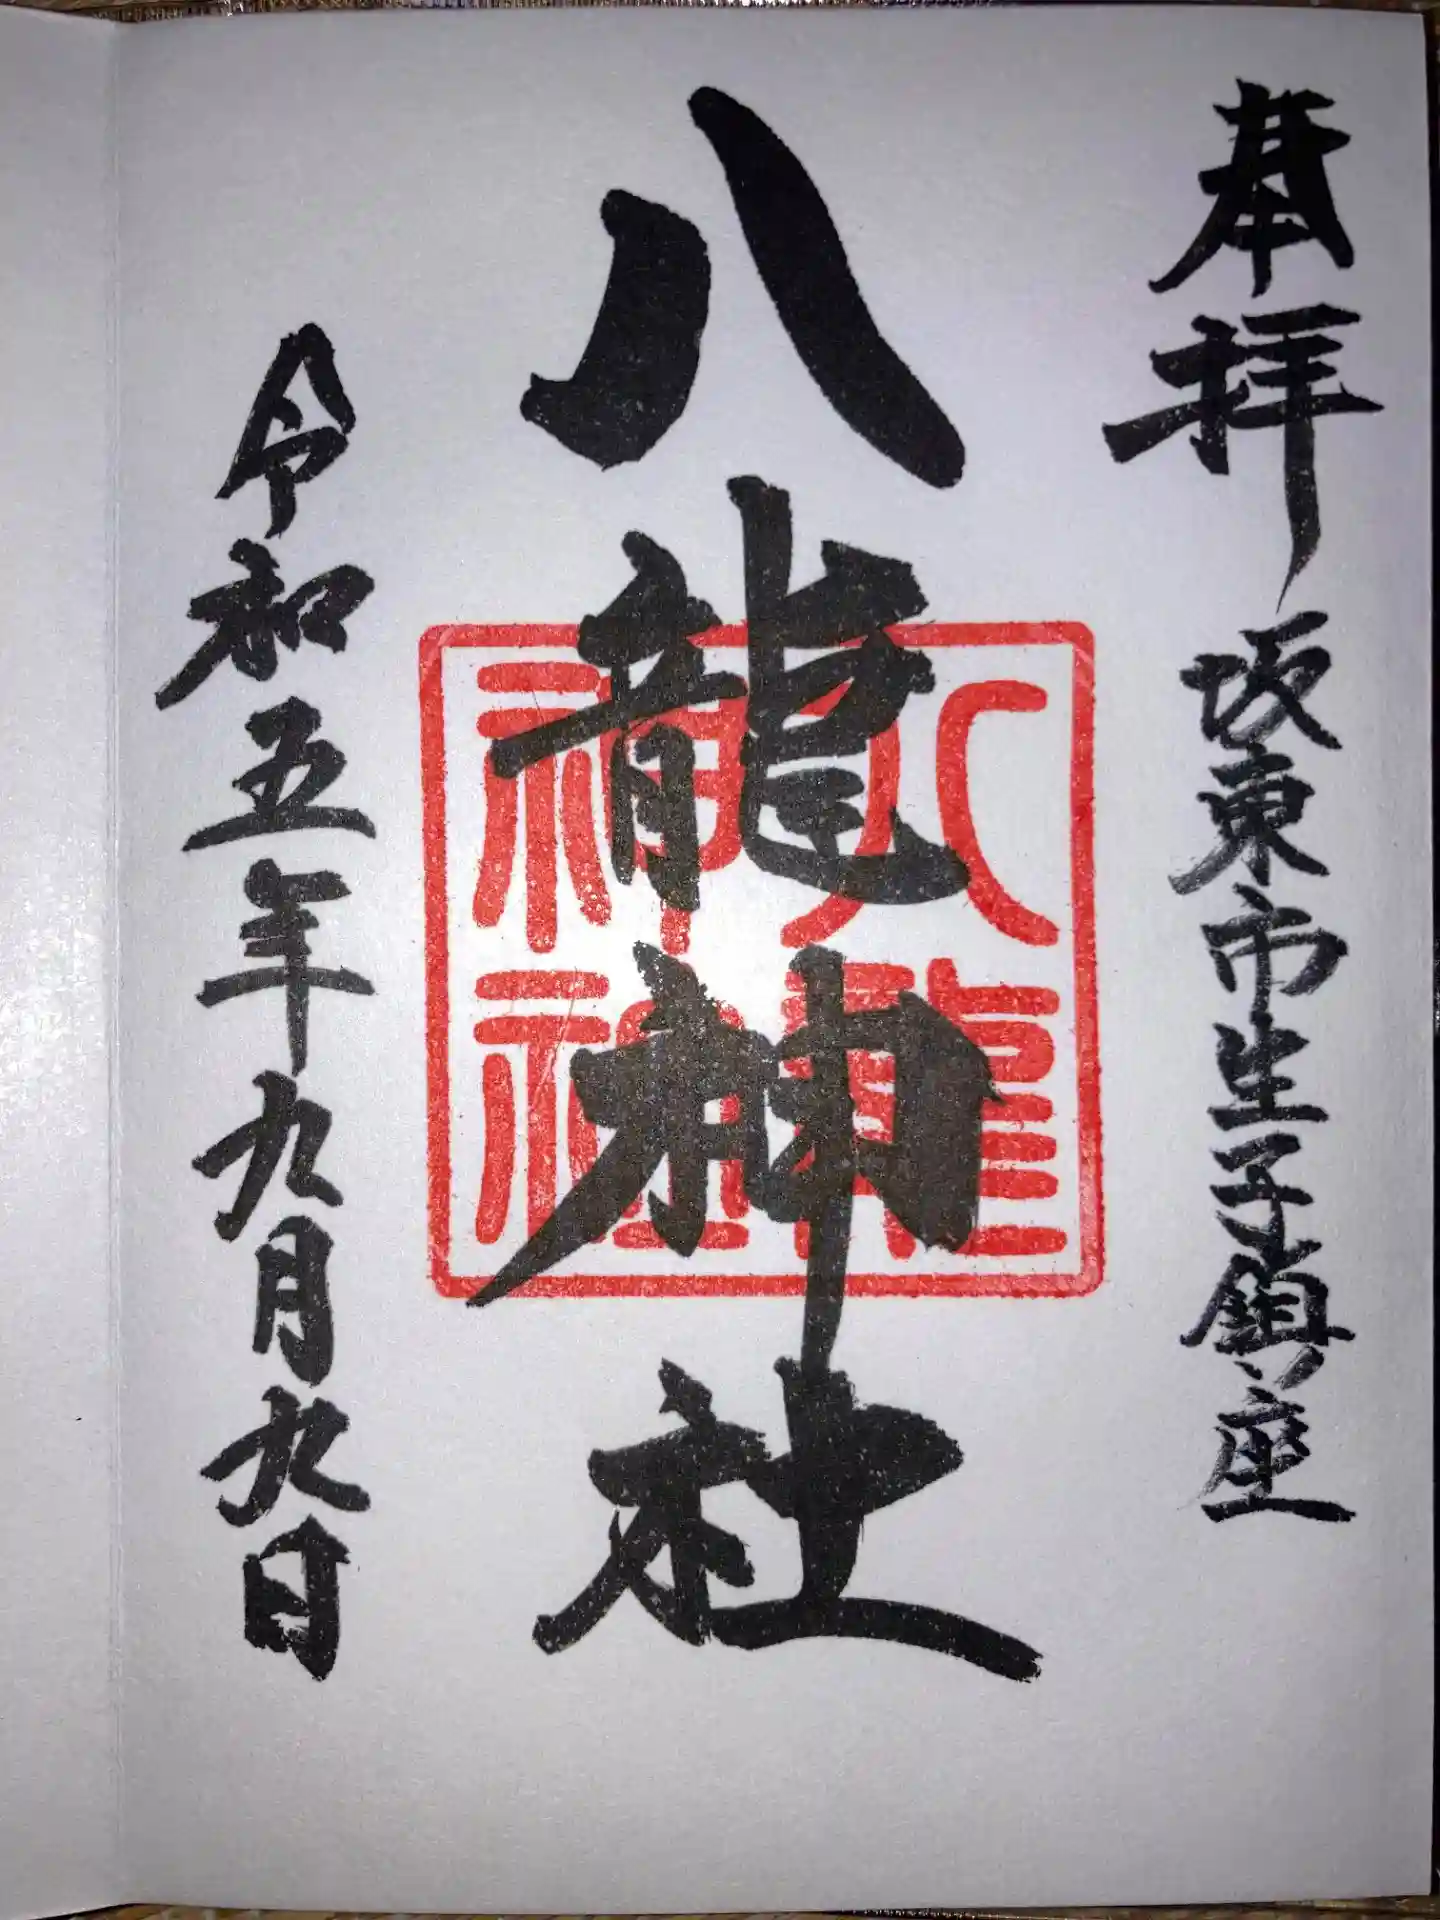 奉拝 坂東市生子鎮座
八龍神社
八龍神社
令和五年九月九日